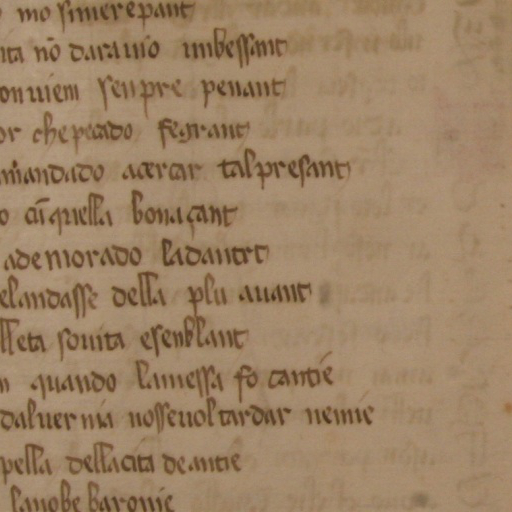 mo si merepant
ita nō dara uio imbessant
onuien senpre penant
or che pecado fe grant
mandado acercar tal presant
o cū quella bona çant
ademorado la dantrt
elandasse della plu auant
lleta souita esenblant
n quando la messa fo cantie
daluernia nosse uol tardar nemie
pella della cita de antie
la nobe baronie